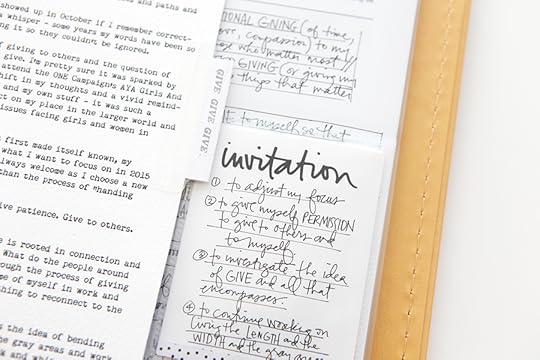 showed up in October if I remember correct-
whisper - some years my words have been so
it so they couldn't be ignored.
f giving to others and the question of
give. I'm pretty sure it was sparked by
attend the ONE Campaigns AYA Girls And
shift in my thoughts and a vivid remind-
and my own stuff - it was such a
ct on my place in the larger world and
issues facing girls and women in
first made itself known, my
what I want to focus on in 2015
always welcome as I choose a new
than the process of "handing
ive patience. Give to others.
e is rooted in connection and
What do the people around
ough the process of giving
me of myself in work and
thing to reconnect to the
s the idea of bending
he gray areas and work
GIVE GIVE GIVE
IONAL GIVING (of time,
compassion) to my
who matter most
GIVING (or giving my
things that matter
to myself so that
invitation
① to adjust my focus
② to give myself PERMISSION
to give to others and
to myself
③ to investigate the idea
of GIVE and all that
encompasses.
④ to continue working on
living the LENGTH and the
WIDTH and the gray areas